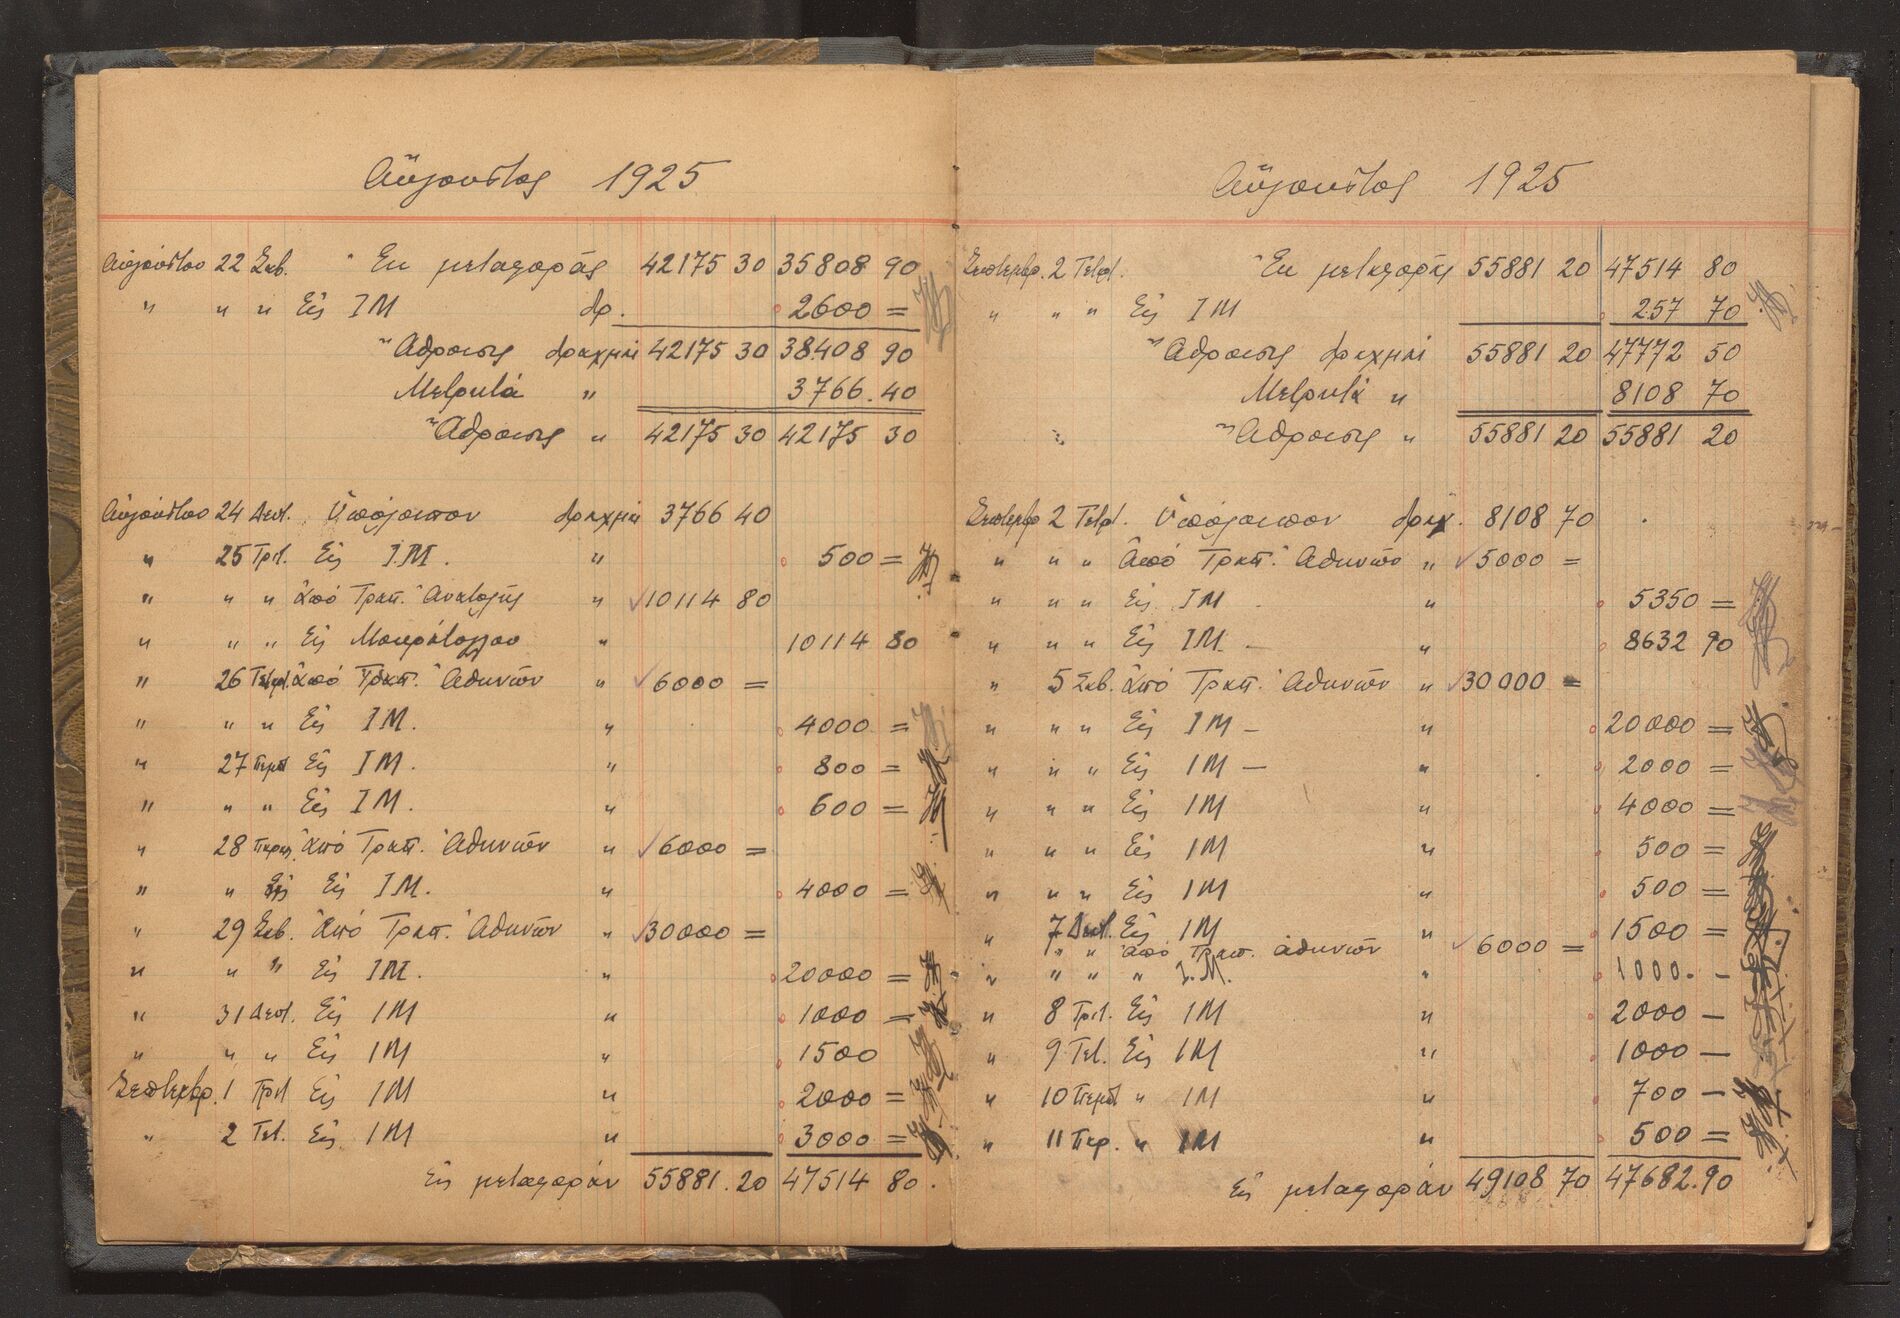 Αὔγουστος 1925
Αὐγούστου 22 Σαβ. Ἐκ μεταφορᾶς 42175 30 35808 90
" " " Εἰς ΙΜ δρ. 2600 =
Ἄθροισις δραχμαὶ 42175 30 38408 90
Μετρητά " 3766.40
Ἄθροισις " 42175 30 42175 30
Αὐγούστου 24 Δευτ. Ὑπόλοιπον δραχμαὶ 3766 40
" 25 Τρίτ. Εἰς Ι.Μ. " 500 =
" " " Ἀπό Τραπ. Ἀνατολῆς " 10114 80
" " " Εἰς " 10114 80
" 26 Τετρ. Ἀπό Τραπ. Ἀθηνῶν " 6000 =
" " " Εἰς ΙΜ. " 4000 =
" 27 Πεμπ Εἰς ΙΜ. " 800 =
" " " Εἰς ΙΜ. " 600 =
" 28 Παρασ. Ἀπό Τραπ. Ἀθηνῶν " 6000 =
" " Εἰς ΙΜ. " 4000 =
" 29 Σαβ. Ἀπό Τραπ. Ἀθηνῶν " 30000 =
" " " Εἰς ΙΜ. " 20000 =
" 31 Δευτ. Εἰς ΙΜ " 1000 =
" " " Εἰς ΙΜ " 1500
Σεπτεμβρ. 1 Τρίτ Εἰς ΙΜ " 2000 =
" 2 Τετ. Εἰς ΙΜ " 3000 =
Εἰς μεταφοράν 55881.20 47514 80.
Αὔγουστος 1925
Σεπτεμβρ. 2 Τετρ. Ἐκ μεταφορᾶς 55881 20 47514 80
" " " Εἰς ΙΜ 257 70
Ἄθροισις δραχμαί 55881 20 47772 50
Μετρητά " 8108 70
" Ἄθροισις " 55881 20 55881 20
Σεπτεμβρ 2 Τετρ. Ὑπόλοιπον δραχ. 8108 70
" " " Ἀπό Τραπ. Ἀθηνῶν " 5000 =
" " " Εἰς ΙΜ " 5350 =
" " " Εἰς ΙΜ. – " 8632 90
" 5 Σαβ. Ἀπό Τραπ. Ἀθηνῶν " 30000 =
" " " Εἰς ΙΜ – " 20000 =
" " " Εἰς ΙΜ – " 2000 =
" " " Εἰς ΙΜ " 4000 =
" " " Εἰς ΙΜ " 500 =
" " " Εἰς ΙΜ " 500 =
" 7 Δευτ. Εἰς ΙΜ " 1500 =
" " Ἀπό Τραπ. Ἀθηνῶν 6000 =
" " " " Ι.Μ. " 1000. –
" 8 Τρίτ. Εἰς ΙΜ " 2000 –
" 9 Τετ. Εἰς ΙΜ " 1000 –
" 10 Πεμπτ " ΙΜ " 700 –
" 11 Παρ. " ΙΜ " 500 =
Εἰς μεταφοράν 49108 70 47682.90